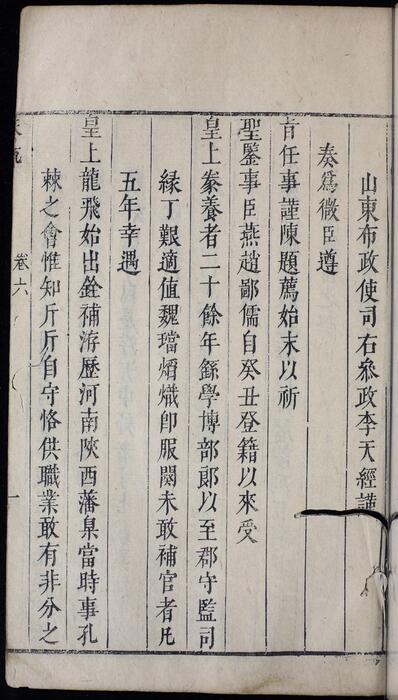 山東布政使司右參政李天經謹
奏爲微臣遵
旨任事謹陳題薦始末以祈
聖鑒事臣燕趙鄙儒自癸丑登籍以來受
皇上豢養者二十餘年繇學博部郎以至郡守監司
緣丁艱適值魏璫熖熾卽服闋未敢補官者凡
五年幸遇
皇上龍飛始出銓補游歷河南陜西藩臬當時事孔
棘之會惟知斤斤自守恪供職業敢有非分之
卷六
一